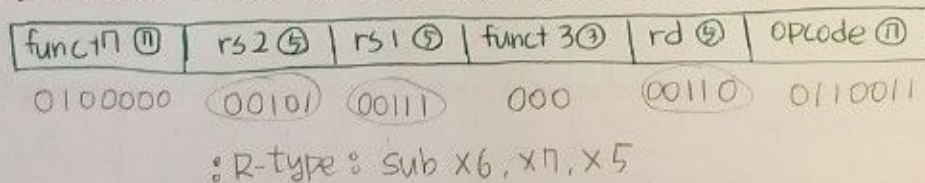 funct7 ⑦ rs2 ⑤ rs1 ⑤ funct 3 ③ rd ⑤ opcode ⑦
0100000 00101 00111 000 00110 0110011
: R-type : sub x6, x7, x5